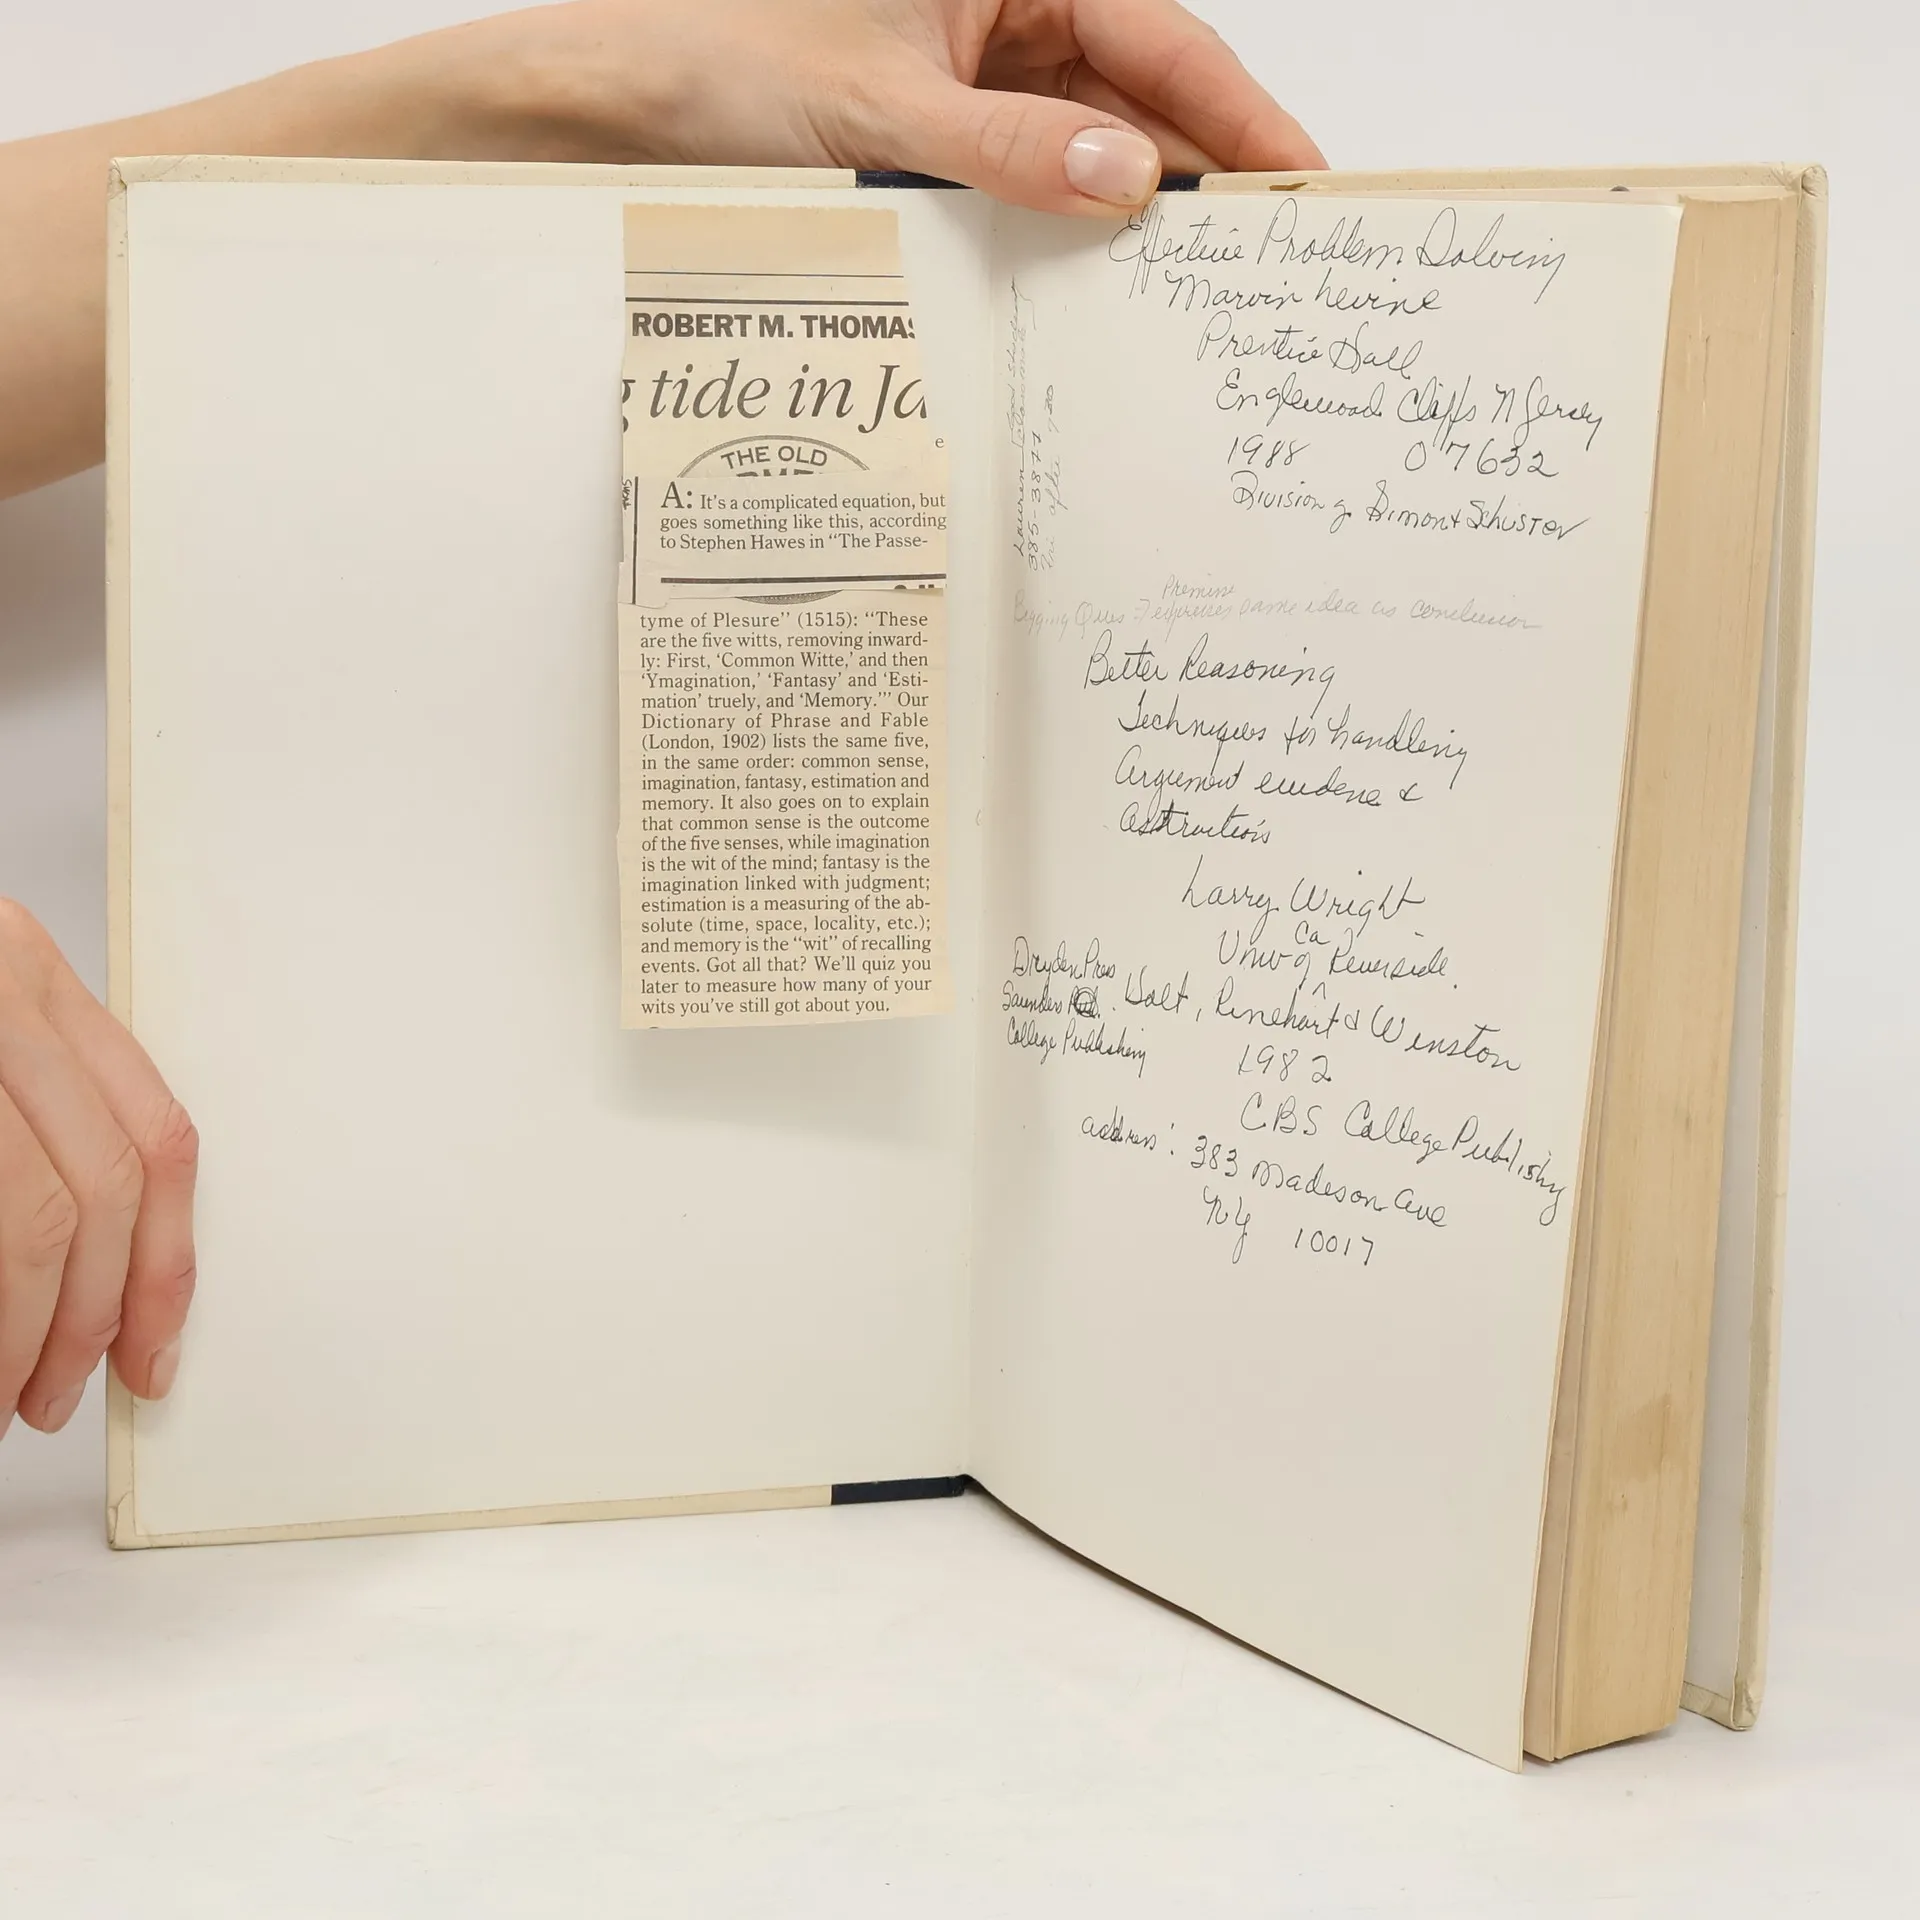 ROBERT M. THOMAS
tide in Ja
e
THE OLD
A: It's a complicated equation, but
goes something like this, according
to Stephen Hawes in “The Passe-
tyme of Plesure” (1515): “These
are the five witts, removing inward-
ly: First, ‘Common Witte,’ and then
‘Ymagination,’ ‘Fantasy’ and ‘Esti-
mation’ truely, and ‘Memory.’” Our
Dictionary of Phrase and Fable
(London, 1902) lists the same five,
in the same order: common sense,
imagination, fantasy, estimation and
memory. It also goes on to explain
that common sense is the outcome
of the five senses, while imagination
is the wit of the mind; fantasy is the
imagination linked with judgment;
estimation is a measuring of the ab-
solute (time, space, locality, etc.);
and memory is the “wit” of recalling
events. Got all that? We'll quiz you
later to measure how many of your
wits you've still got about you.
Effective Problem Solving
Marvin Levine
Prentice Hall
Englewood Cliffs N Jersey
1988 07632
Division of Simon & Schuster
Lauren
385-3877
after 7:30
Premise
Begging Ques expresses same idea as conclusion
Better Reasoning
Techniques for handling
Argument evidence &
Larry Wright
Ca
Univ of Riverside.
Dryden Press
Saunders
College Publishing
Holt, Rinehart & Winston
1982
CBS College Publishing
address: 383 Madison Ave
NY 10017